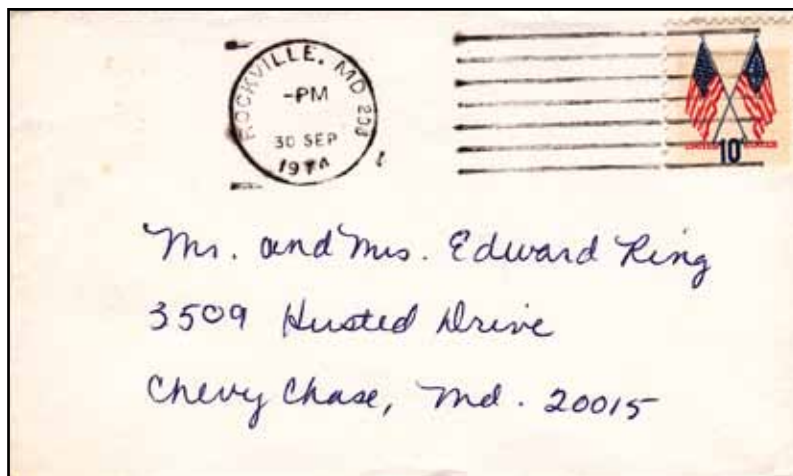 ROCKVILLE, MD
-PM
30 SEP
10
Mr. and Mrs. Edward Ring
3509 Husted Drive
Chevy Chase, Md. 20015